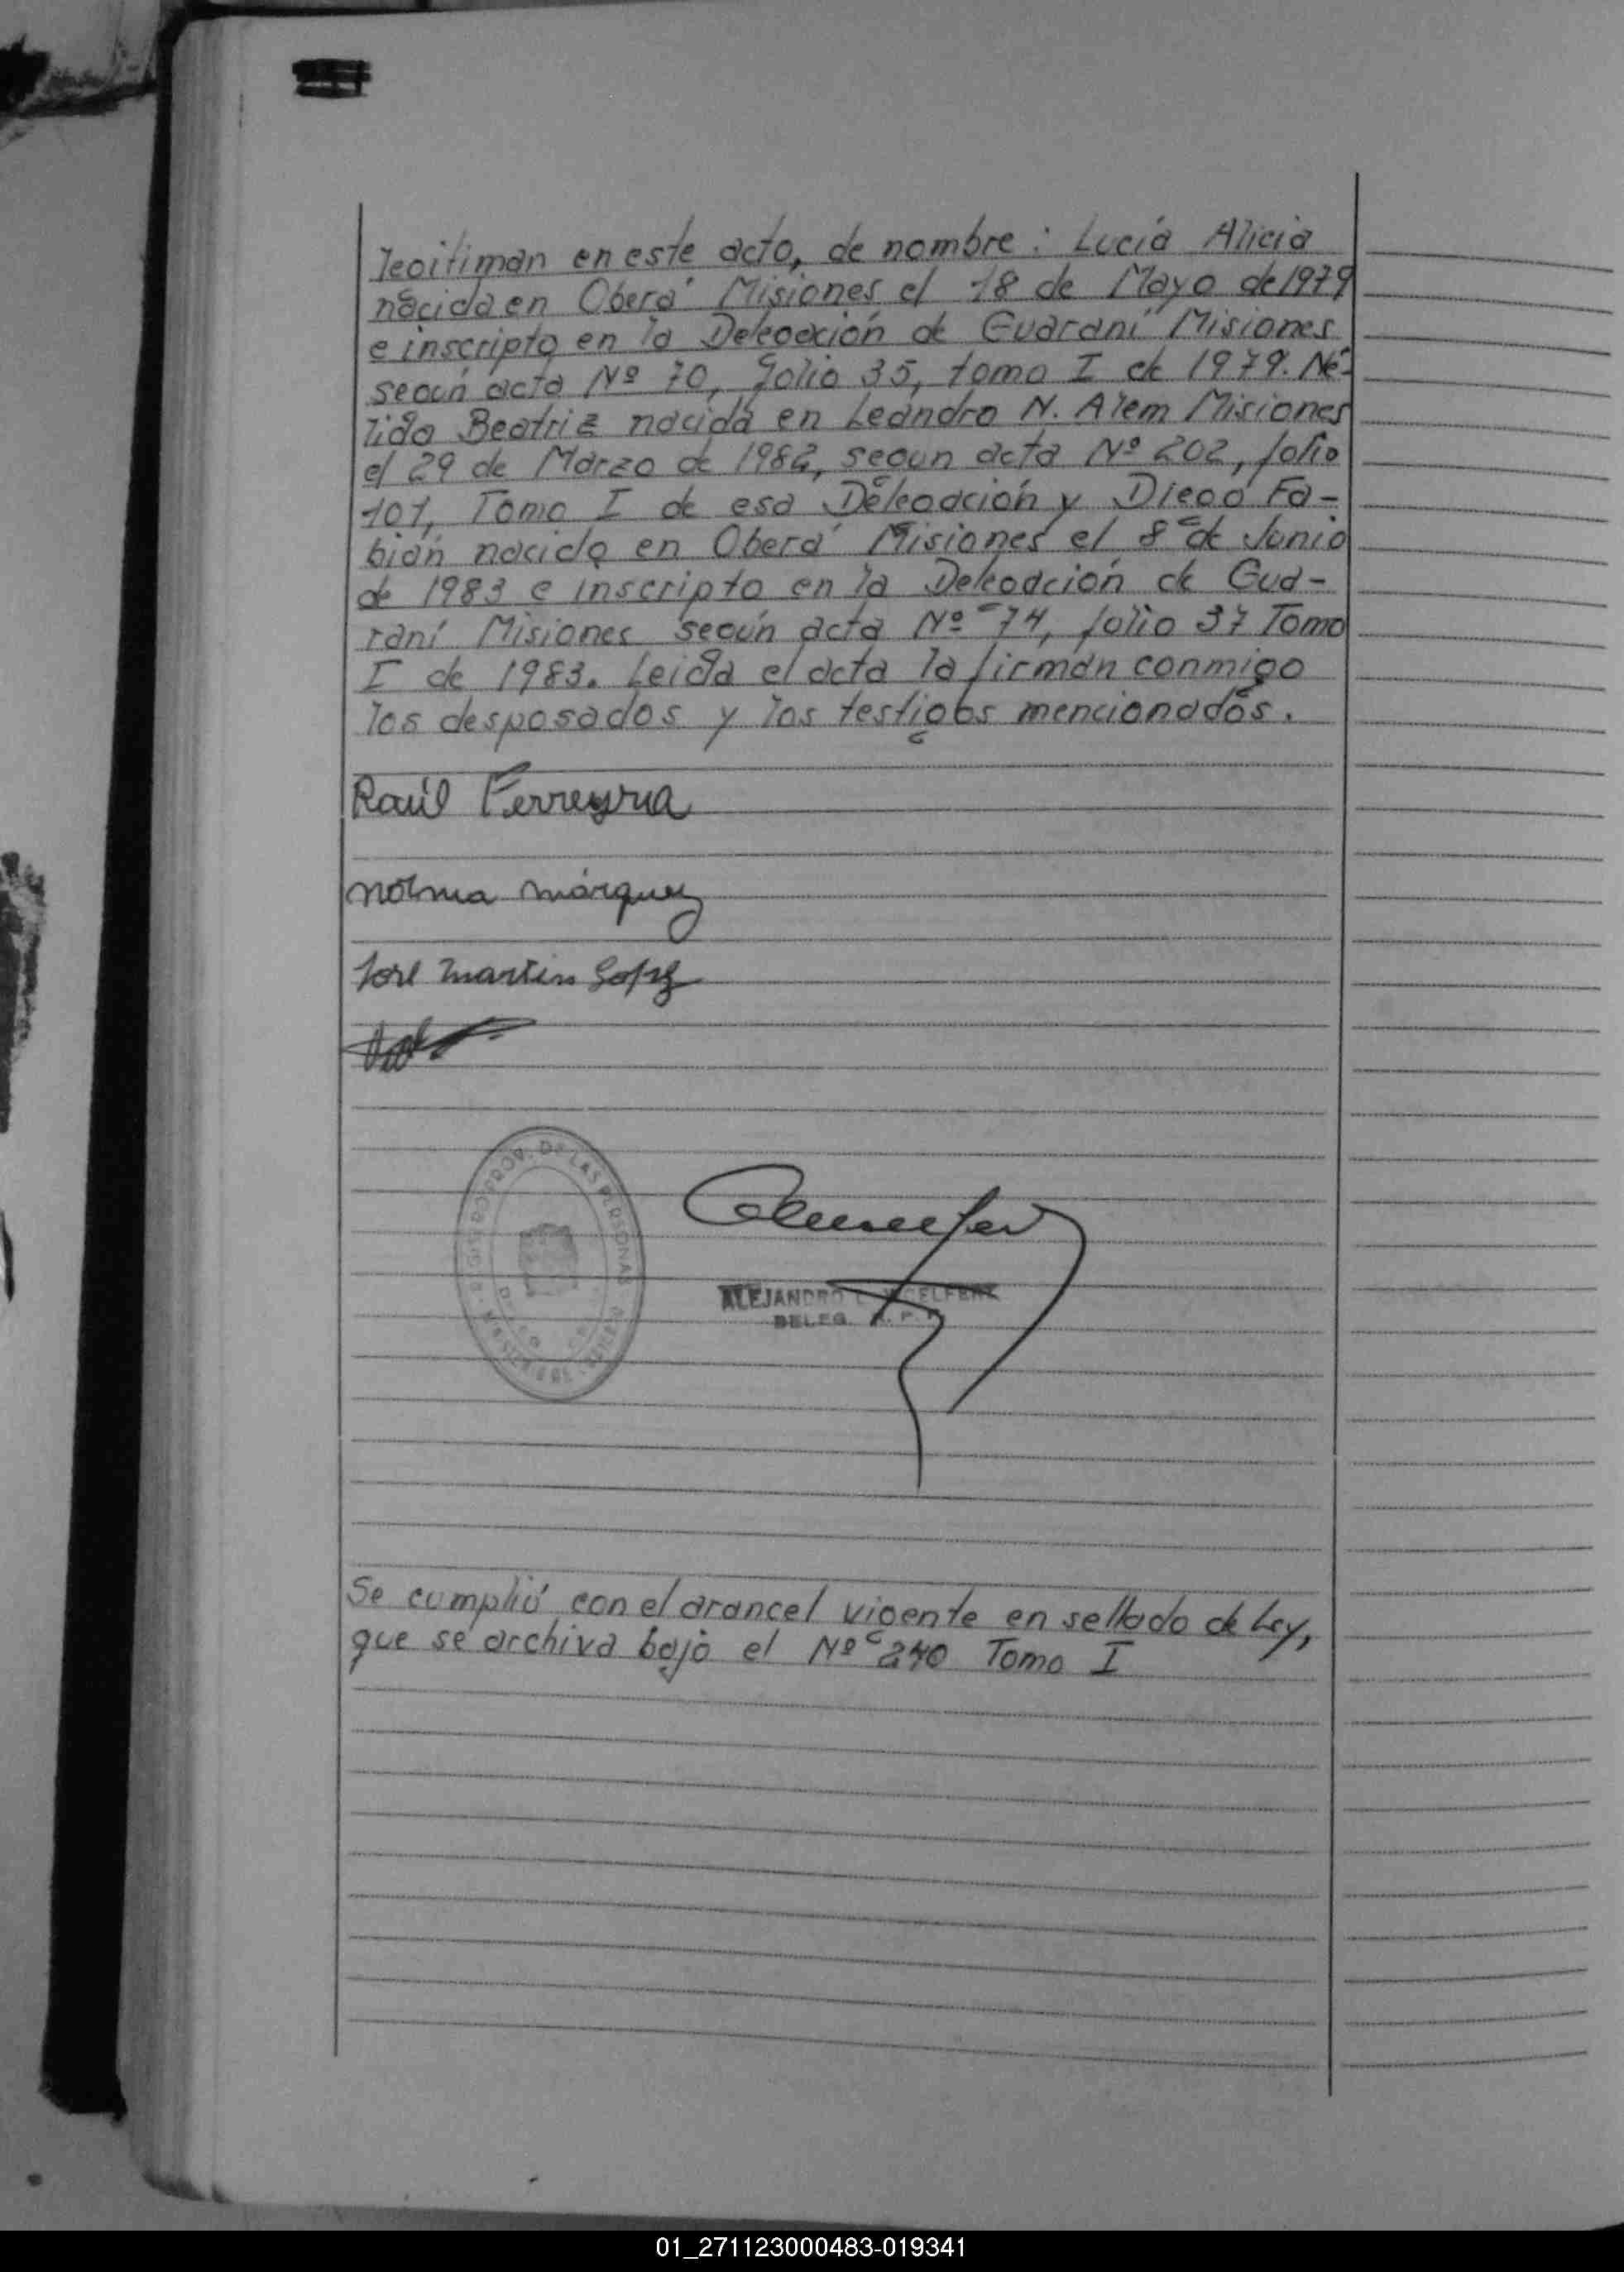 legitiman en este acto, de nombre: Lucía Alicia
nacida en Oberá Misiones el 18 de Mayo de 1979
e inscripta en la Delegación de Guaraní Misiones
según acta Nº 70, folio 35, tomo I de 1979. Né-
lida Beatriz nacida en Leandro N. Alem Misiones
el 29 de Marzo de 1982, segun acta Nº 202, folio
101, Tomo I de esa Delegación y Diego Fa-
bián nacido en Oberá Misiones el 8 de Junio
de 1983 e inscripto en la Delegación de Gua-
raní Misiones según acta Nº 74, folio 37 Tomo
I de 1983. Leida el acta la firman conmigo
los desposados y los testigos mencionados.
Raúl Ferreyra
Norma Márquez
José Martin Lopez
REGISTRO PROV. DE LAS PERSONAS
ALEJANDRO
DELEG. R. P. P.
Se cumplió con el arancel vigente en sellado de Ley,
que se archiva bajo el Nº 240 Tomo I
01_271123000483-019341